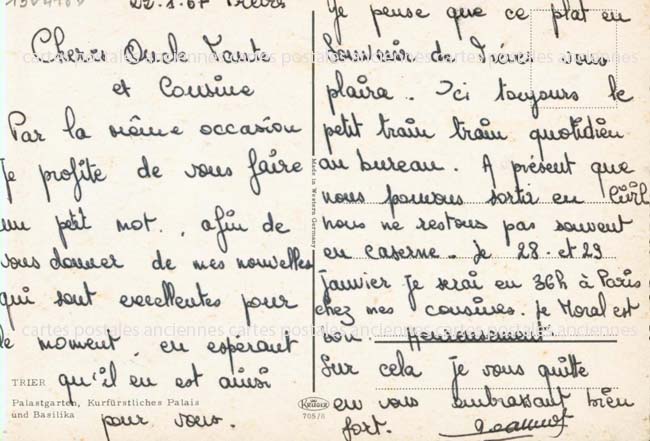 22.1.67 Trèves
Chers Oncle Tante
et Cousine
Par la même occasion
Je profite de vous faire
un petit mot., afin de
vous donner de mes nouvelles
qui sont excellentes pour
le moment, en espérant
qu'il en est ainsi
pour vous.
TRIER
Palastgarten, Kurfürstliches Palais
und Basilika
Made in Western Germany
KRÜGER
705/8
Je pense que ce plat en
souvenir de Trèves vous
plaira. Ici toujours le
petit train train quotidien
au bureau. A présent que
nous pouvons sortir en civil
nous ne restons pas souvent
en caserne. Le 28 et 29
janvier Je serai en 36h à Paris
chez mes cousines. Le Moral est
bon. Heureusement
Sur cela Je vous quitte
en vous embrassant bien
fort.
cartes postales anciennes cartes postales anciennes cartes postales anciennes
cartes postales anciennes cartes postales anciennes cartes postales anciennes